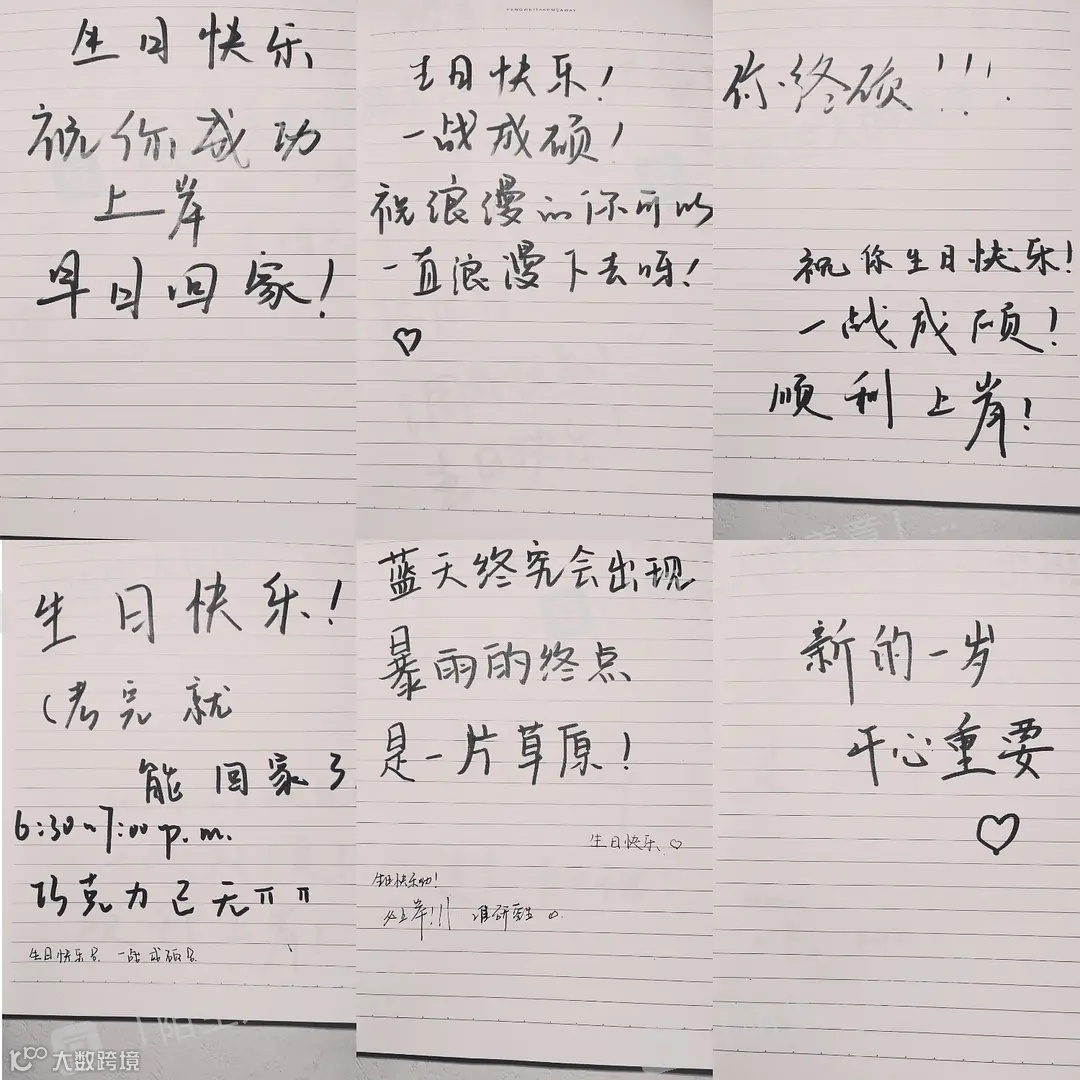 生日快乐
祝你成功
上岸
早日回家!
生日快乐!
一战成硕!
祝浪漫的你可以
一直浪漫下去呀!
♡
你终硕!!!
祝你生日快乐!
一战成硕!
顺利上岸!
生日快乐!
(考完就
能回家了
6:30~7:00 p.m.
巧克力已无ππ
生日快乐 一战成硕
蓝天终究会出现
暴雨的终点
是一片草原!
生日快乐 ♡
生日快乐!
上岸!!! 准研究生
新的一岁
开心重要
♡
大数跨境